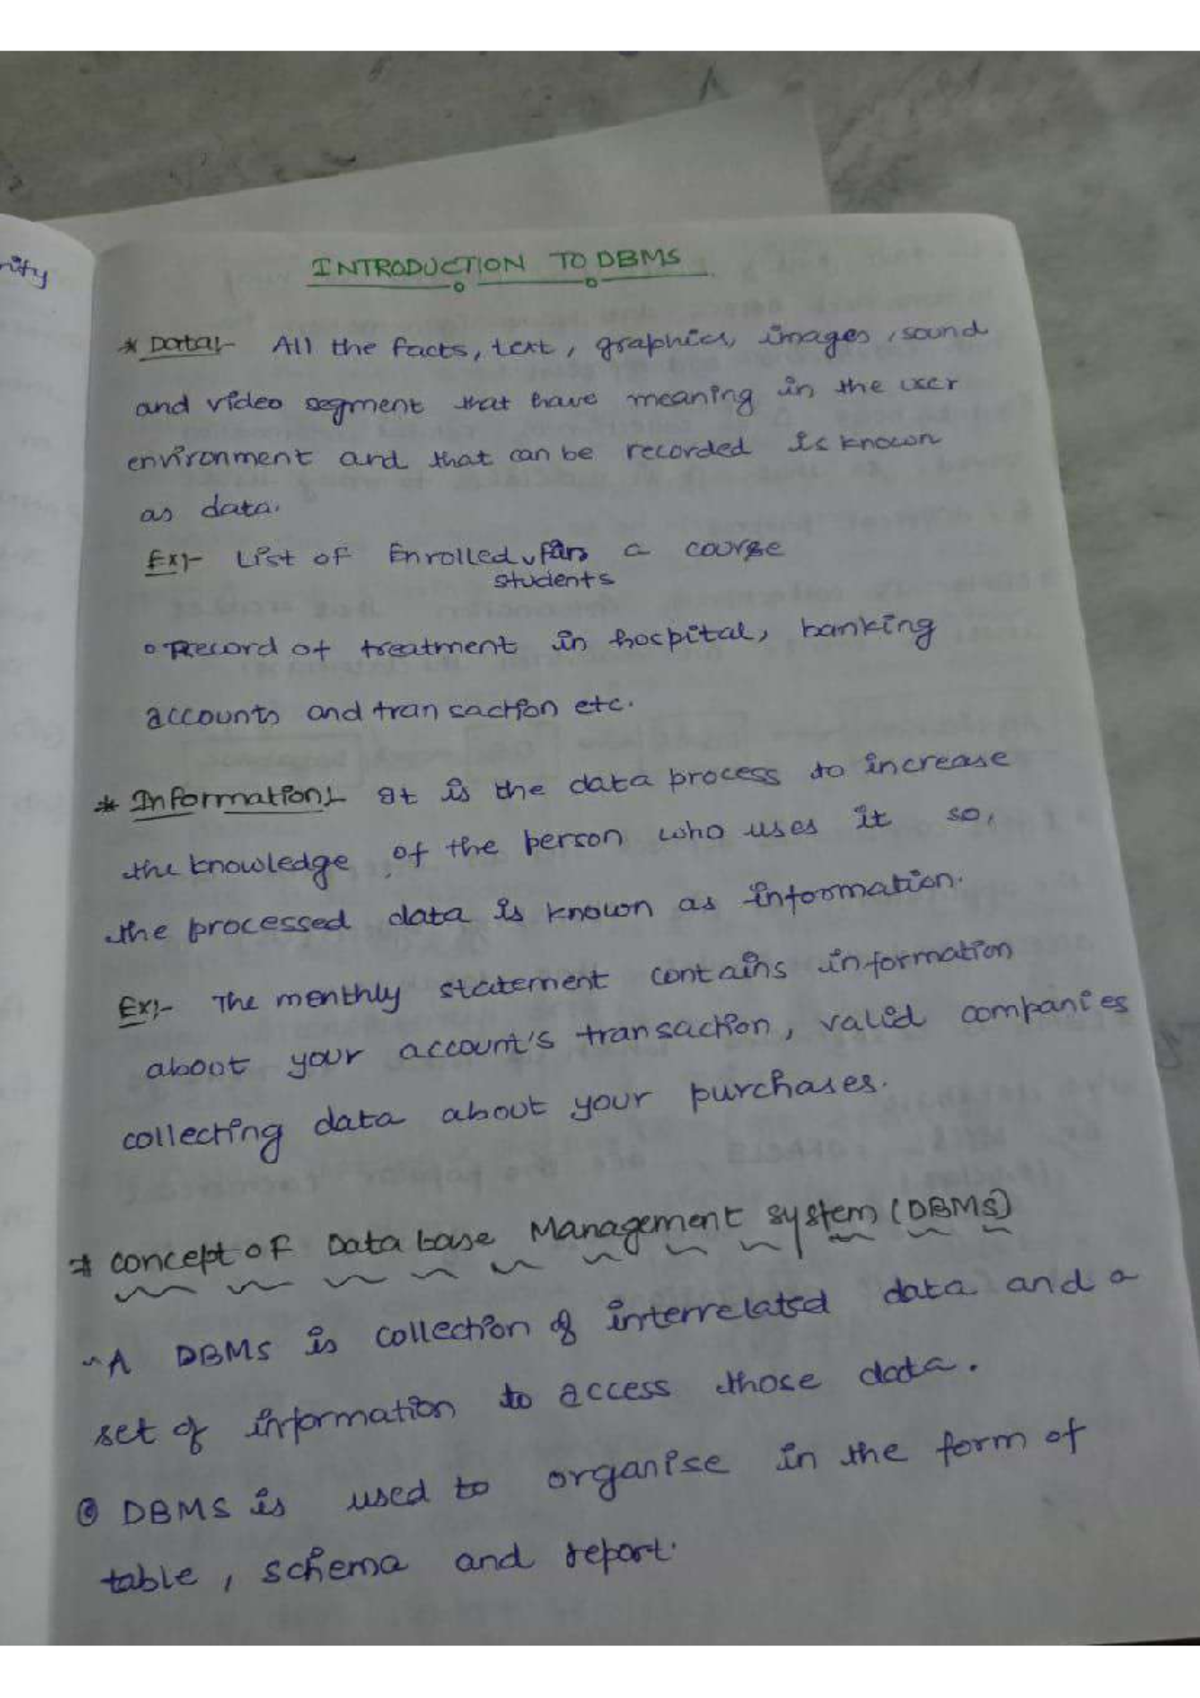 INTRODUCTION TO DBMS
rity
* Data:- All the facts, text, graphics, images, sound
and video segment that have meaning in the user
environment and that can be recorded is known
as data.
Ex:- List of Enrolled students for a course
o Record of treatment in hospital, banking
accounts and transaction etc.
* Information:- It is the data process to increase
the knowledge of the person who uses it so,
the processed data is known as information.
Ex:- The monthly statement contains information
about your account's transaction, valid companies
collecting data about your purchases.
* Concept of Data base Management System (DBMS)
A DBMS is collection of interrelated data and a
set of information to access those data.
DBMS is used to organise in the form of
table, schema and report.